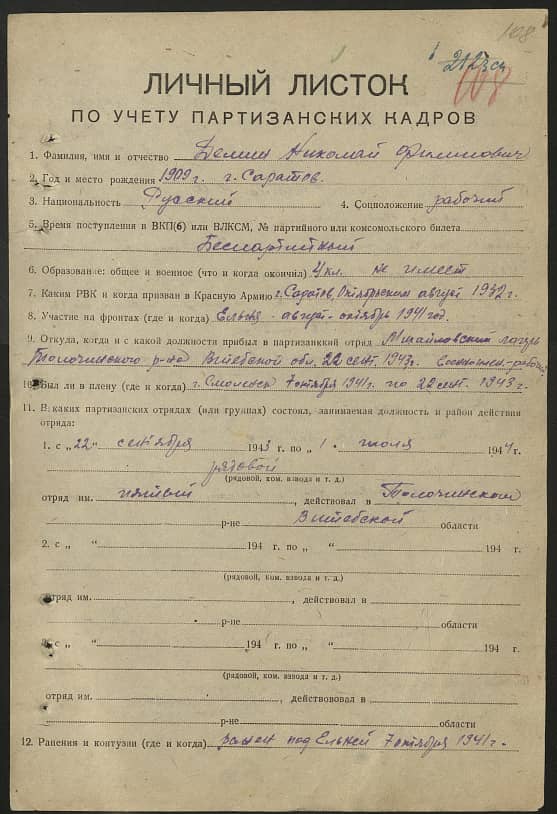 108
2123сч
108
ЛИЧНЫЙ ЛИСТОК
ПО УЧЕТУ ПАРТИЗАНСКИХ КАДРОВ
1. Фамилия, имя и отчество Белин Николай Филиппович
2. Год и место рождения 1909 г. г. Саратов.
3. Национальность Русский 4. Соцположение рабочий
5. Время поступления в ВКП(б) или ВЛКСМ, № партийного или комсомольского билета
Беспартийный
6. Образование: общее и военное (что и когда окончил) 4 кл. не имеет
7. Каким РВК и когда призван в Красную Армию г. Саратов, Октябрьском август 1932 г.
8. Участие на фронтах (где и когда) Ельня - август - октябрь 1941 год.
9. Откуда, когда и с какой должности прибыл в партизанский отряд Михайловский лагерь
Толочинского р-на Витебской обл. 22 сент. 1943г. рабочий
10. Был ли в плену (где и когда) г. Смоленск 7 октября 1941г. по 22 сент. 1943 г.
11. В каких партизанских отрядах (или группах) состоял, занимаемая должность и район действия
отряда:
1. с „22“ сентября 1943 г. по „1. “ июля 1944 г.
рядовой
(рядовой, ком. взвода и т. д.)
отряд им. , действовал в Толочинском
р-не Витебской области
2. с „ “ 194 г. по „ “ 194 г.
(рядовой, ком. взвода и т. д.)
отряд им. , действовал в
р-не области
3. с „ “ 194 г. по „ “ 194 г.
(рядовой, ком. взвода и т. д.)
отряд им. , действововал в
р-не области
12. Ранения и контузии (где и когда) ранен под Ельней 7 октября 1941г.